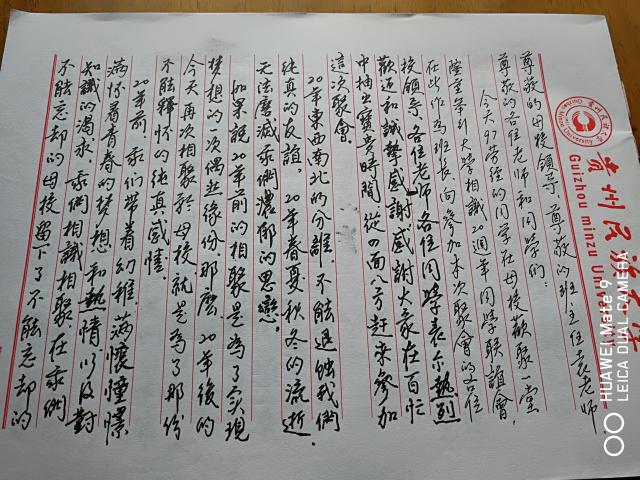 贵州民族大
Guizhou minzu Univers
尊敬的母校领导、尊敬的班主任袁老师、
尊敬的各位老师和同学們:
今天97劳经的同学在母校歡聚一堂
隆重举行大學相識20週年同學联誼會,
在此作为班長,向參加本次聚會的各位
校領导、各位老师各位同學表示熱烈
歡迎和誠摯感謝感謝大家在百忙
中抽出寶貴時間從四面八方赶来參加
這次聚會。
20年東西南北的分離,不能退蝕我們
纯真的友誼,20年春夏秋冬的流逝
无法磨滅我們濃郁的思戀。
如果說20年前的相聚是為了实現
梦想的一次偶然缘份,那麽20年後的
今天再次相聚於母校就是為了那份
不能釋怀的纯真感情。
20年前,我们带着幼稚、滿懷憧憬
满怀着青春的梦想和熱情以及對
知識的渴求,我們相識相聚在我們
不能忘却的母校留下了不能忘却的
HUAWEI Mate 9
LEICA DUAL CAMERA